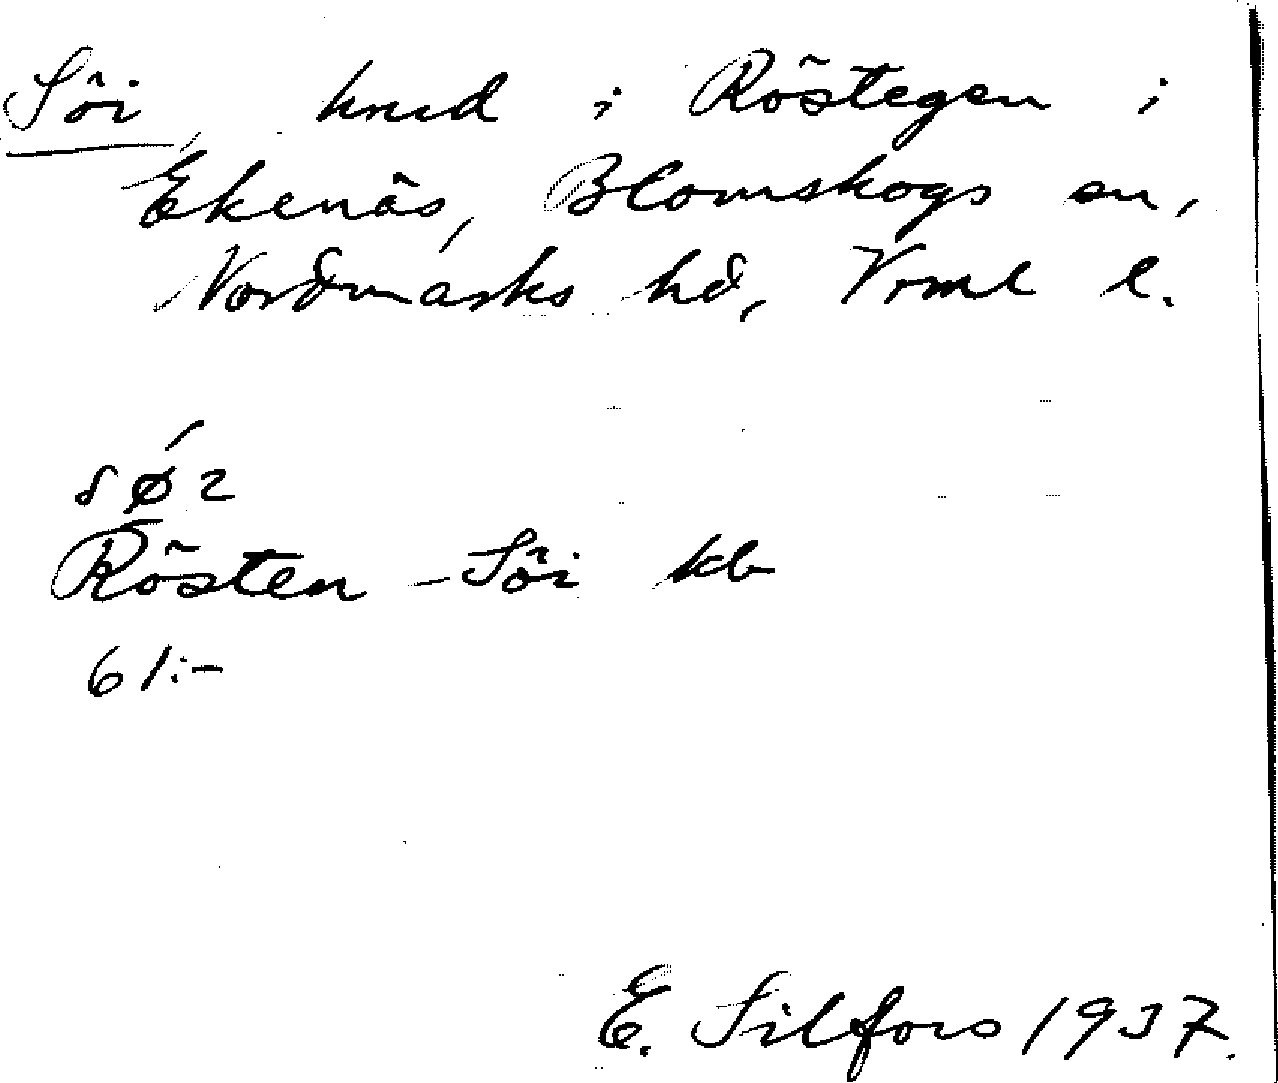 Söi, knud i Röstegen i
Ekenäs, Blomskogs sn,
Nordmarks hd, Vrml l.
sø´2
Rösten - Söi kb
61:-
E. Silfors 1937.